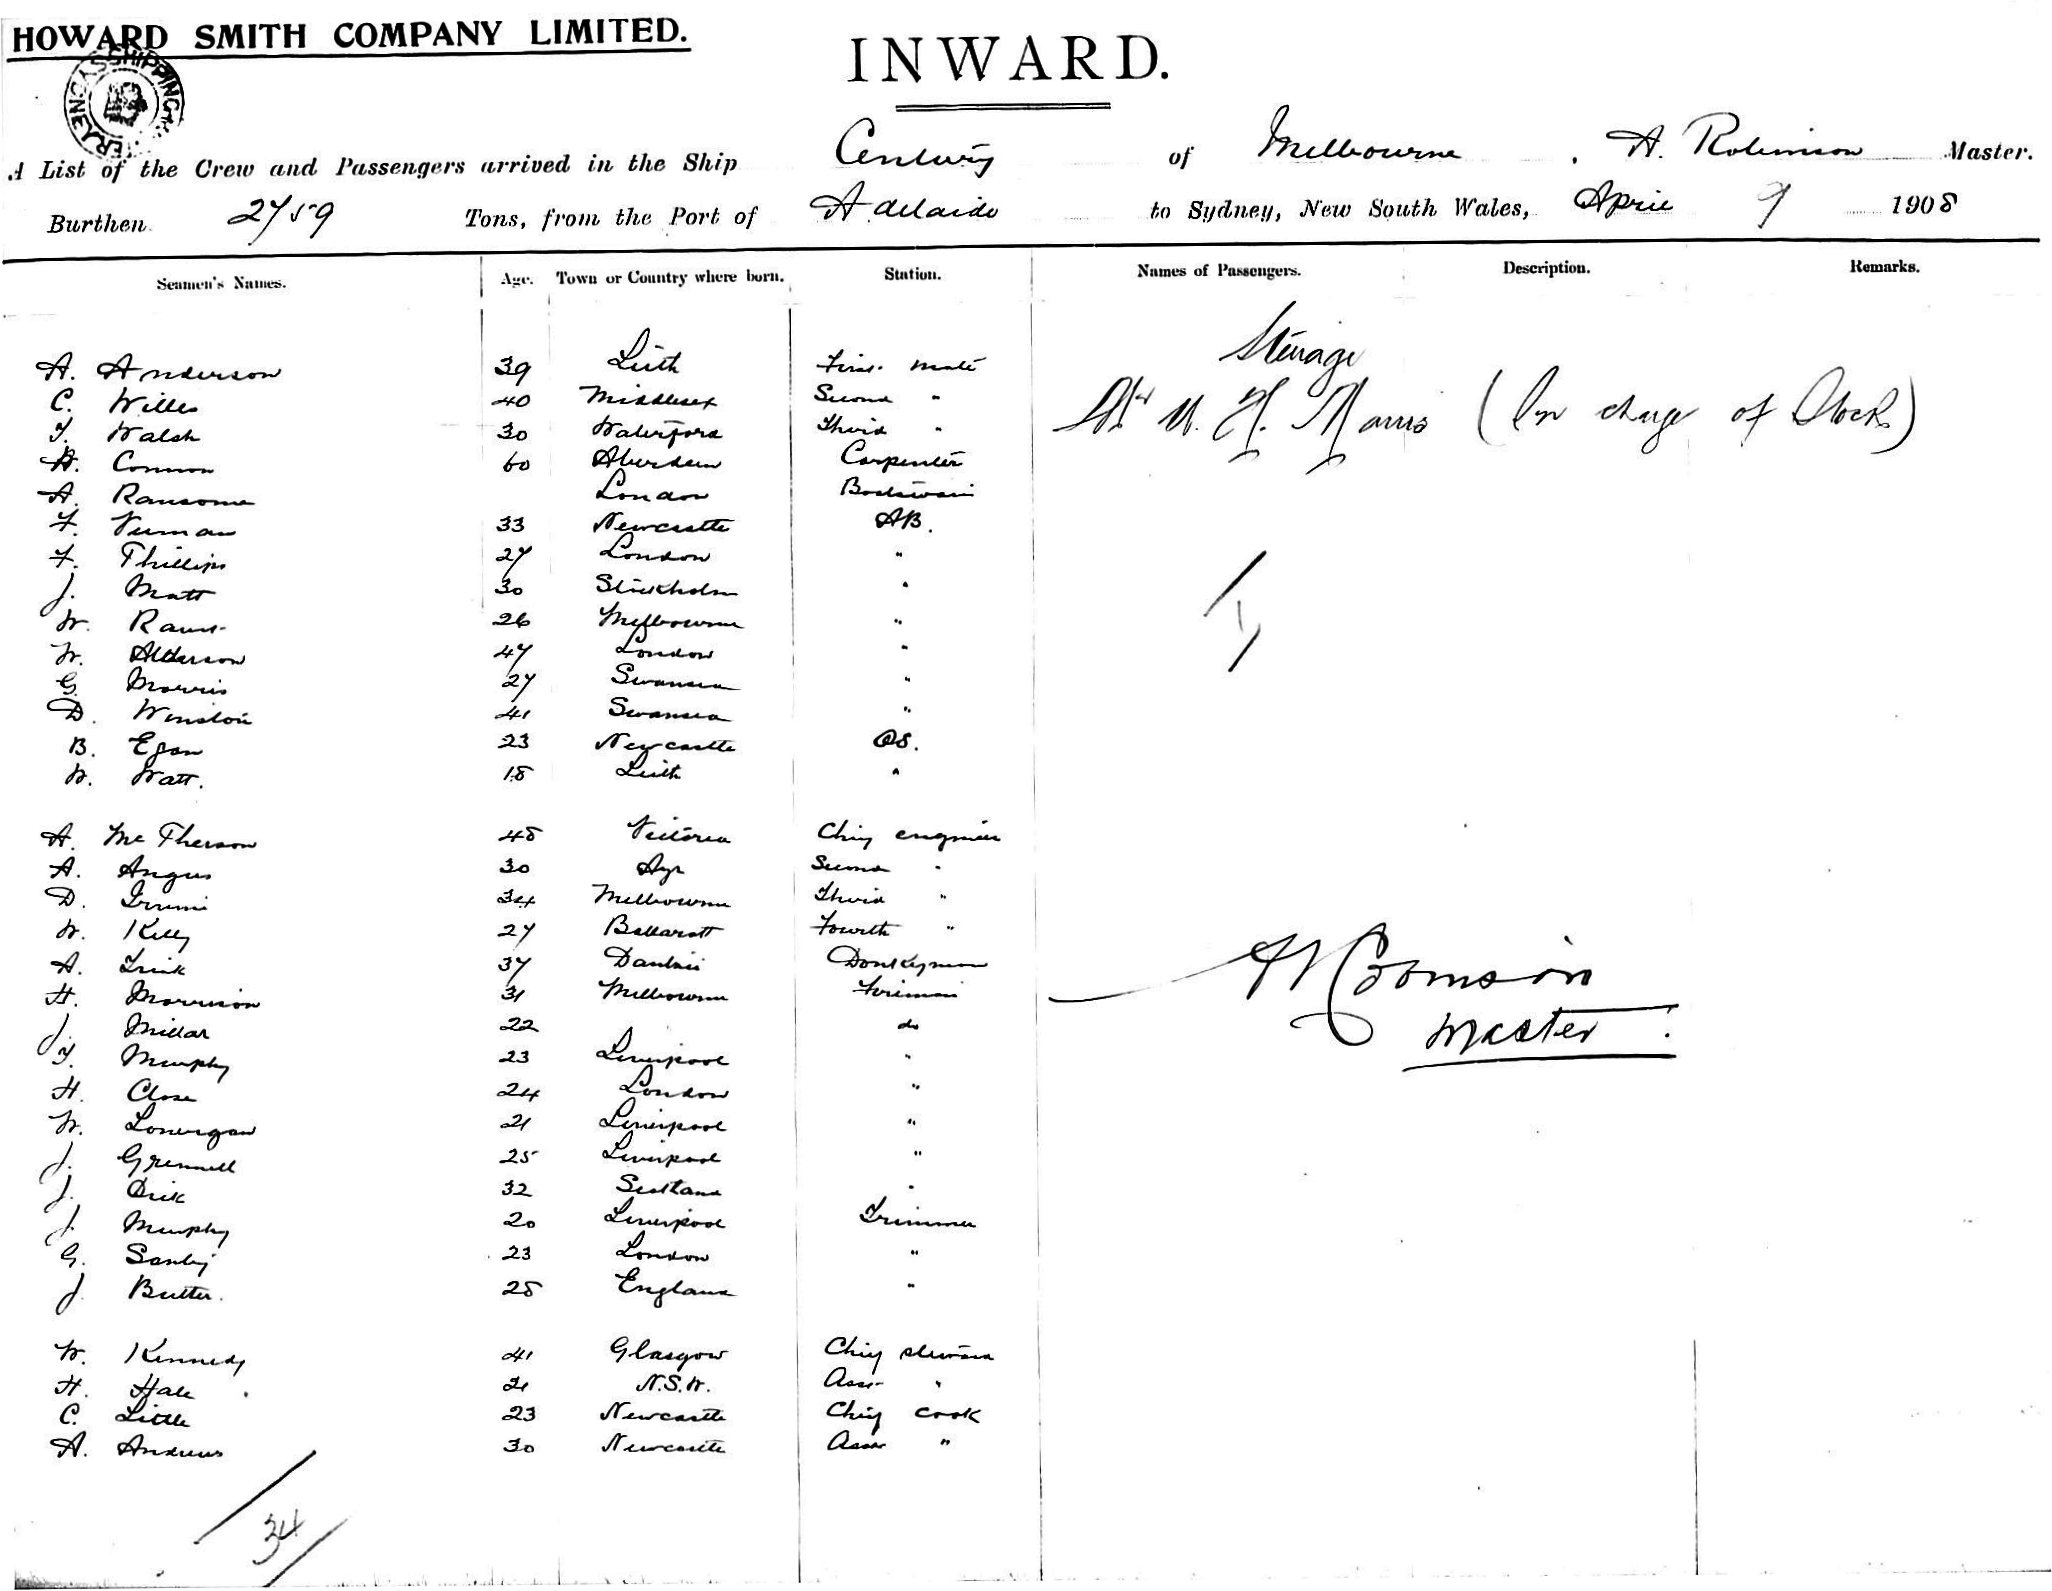 HOWARD SMITH COMPANY LIMITED.
INWARD.
SHIPPING
A List of the Crew and Passengers arrived in the Ship Century of Melbourne, A. Robinson Master.
Burthen 2759 Tons, from the Port of Adelaide to Sydney, New South Wales, April 9 1908
Seamen's Names. Age. Town or Country where born. Station. Names of Passengers. Description. Remarks.
Steerage
A. Anderson 39 Leith First mate
C. Willes 40 Middlesex Second "
Mr (In charge of Stock)
T. Walsh 30 Waterford Third "
A. Connon 60 Aberdeen Carpenter
A. Ransome London Boatswain
F. 33 Newcastle AB.
F. Phillips 27 London "
J. Matt 30 Stockholm "
W. 26 Melbourne "
W. Alderson 47 London "
G. Morris 27 Swansea "
D. Winston 41 Swansea "
B. Egan 23 Newcastle OS.
W. Watt. 18 Leith "
1
A. McPherson 48 Victoria Chief engineer
A. Angus 30 Ayr Second "
D. 34 Melbourne Third "
W. Kelly 27 Ballaratt Fourth "
A. 37 Donkeyman
H. Morrison 31 Melbourne Fireman
J. Millar 22 do
T. Murphy 23 Liverpool "
H. Close 24 London "
W. Lonergan 21 Liverpool "
J. Grennell 25 Liverpool "
J. Dick 32 Scotland "
J. Murphy 20 Liverpool Trimmer
G. 23 London "
J. Butter. 28 England "
A Robinson
Master.
W. Kennedy 41 Glasgow Chief steward
H. Hale 21 N.S.W. Asst "
C. Little 23 Newcastle Chief cook
A. Andrews 30 Newcastle Asst "
34